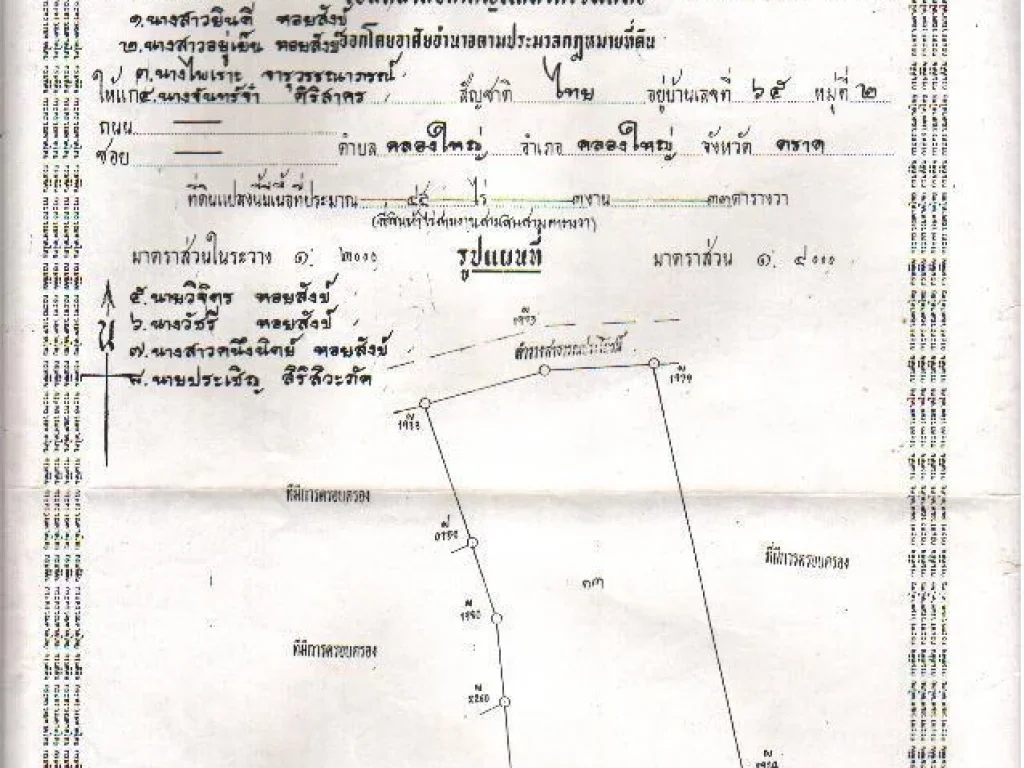 ๑.นางสาวยินดี หอยสังข์
๒.นางสาวอยู่เย็น หอยสังข์
ออกโดยอาศัยอำนาจตามประมวลกฎหมายที่ดิน
๓.นางไพเราะ จารุวรรณาภรณ์
ให้แก่ ๔.นางจันทร์จำ ศิริสาคร สัญชาติ ไทย อยู่บ้านเลขที่ ๖๕ หมู่ที่ ๒
ถนน —
ซอย — ตำบล คลองใหญ่ อำเภอ คลองใหญ่ จังหวัด ตราด
ที่ดินแปลงนี้มีเนื้อที่ประมาณ ๔๕ ไร่ ๓ งาน ๓๓ ตารางวา
(สี่สิบห้าไร่สามงานสามสิบสามตารางวา)
มาตราส่วนในระวาง ๑: ๒๐๐๐ รูปแผนที่ มาตราส่วน ๑: ๔๐๐๐
น
๕.นายวิจิตร หอยสังข์
๖.นางวัชรี หอยสังข์
๗.นางสาวคนึงนิตย์ หอยสังข์
๘.นายประเชิญ สิริสิวะภัค
ที่มีการครอบครอง
ที่มีการครอบครอง
๑๓
ที่มีการครอบครอง